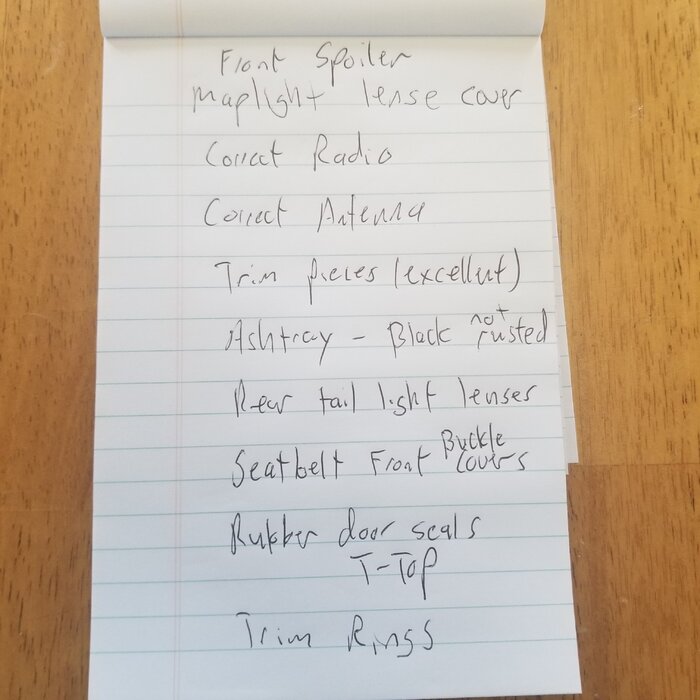 Front Spoiler
Maplight lense cover
Correct Radio
Correct Antenna
Trim pieces (excellent)
Ashtray - Black not rusted
Rear tail light lenses
Seatbelt Front Buckle Covers
Rubber door seals
T-Top
Trim Rings